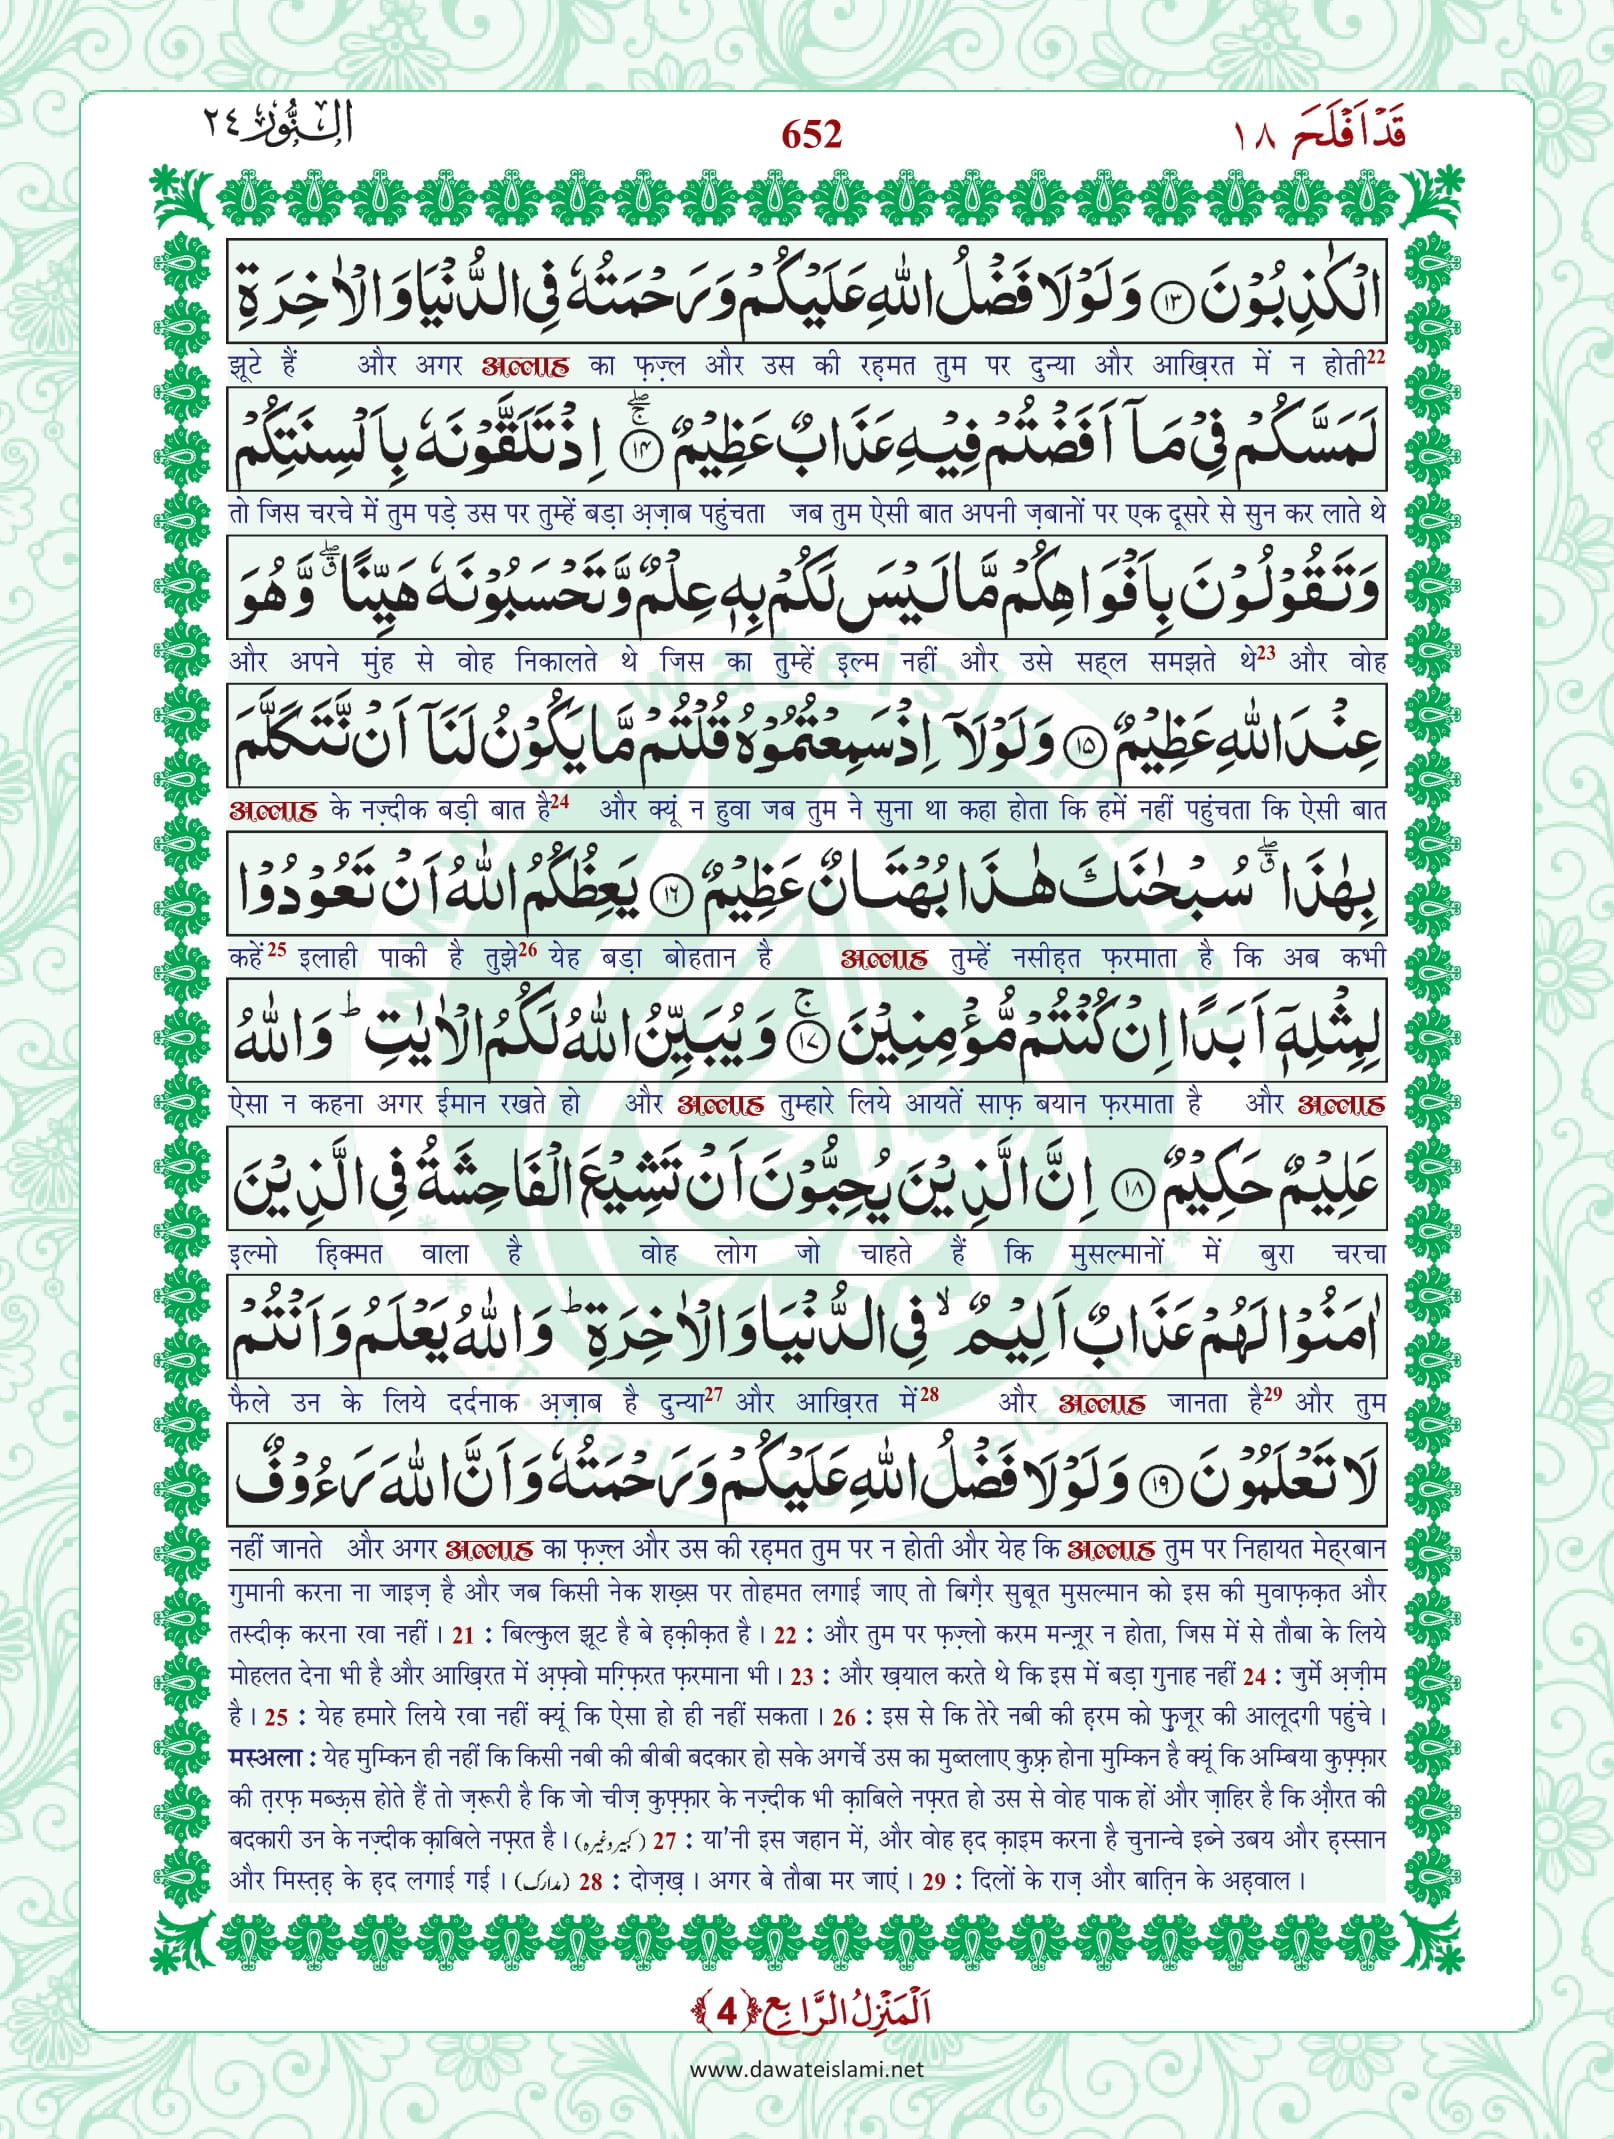 اَلنُّوْر ٢٤
652
قَدْ اَفْلَحَ ١٨
الْكٰذِبُوْنَ ﴿۱۳﴾ وَلَوْلَا فَضْلُ اللّٰهِ عَلَيْكُمْ وَرَحْمَتُهٗ فِى الدُّنْيَا وَالْاٰخِرَةِ
झूटे हैं और अगर अल्लाह का फ़ज़्ल और उस की रह़मत तुम पर दुन्या और आख़िरत में न होती22
لَمَسَّكُمْ فِىْ مَاۤ اَفَضْتُمْ فِيْهِ عَذَابٌ عَظِيْمٌ ﴿۱۴﴾ۚۖ اِذْ تَلَقَّوْنَهٗ بِاَلْسِنَتِكُمْ
तो जिस चरचे में तुम पड़े उस पर तुम्हें बड़ा अ़ज़ाब पहुंचता जब तुम ऐसी बात अपनी ज़बानों पर एक दूसरे से सुन कर लाते थे
وَتَقُوْلُوْنَ بِاَفْوَاهِكُمْ مَّا لَيْسَ لَكُمْ بِهٖ عِلْمٌ وَّتَحْسَبُوْنَهٗ هَيِّنًا ۖۗ وَّهُوَ
और अपने मुंह से वोह निकालते थे जिस का तुम्हें इ़ल्म नहीं और उसे सह्ल समझते थे23 और वोह
عِنْدَ اللّٰهِ عَظِيْمٌ ﴿۱۵﴾ وَلَوْلَاۤ اِذْ سَمِعْتُمُوْهُ قُلْتُمْ مَّا يَكُوْنُ لَنَاۤ اَنْ نَّتَكَلَّمَ
अल्लाह के नज़्दीक बड़ी बात है24 और क्यूं न हुवा जब तुम ने सुना था कहा होता कि हमें नहीं पहुंचता कि ऐसी बात
بِهٰذَا ۖۗ سُبْحٰنَكَ هٰذَا بُهْتَانٌ عَظِيْمٌ ﴿۱۶﴾ يَعِظُكُمُ اللّٰهُ اَنْ تَعُوْدُوْا
कहें25 इलाही पाकी है तुझे26 येह बड़ा बोहतान है अल्लाह तुम्हें नसीह़त फ़रमाता है कि अब कभी
لِمِثْلِهٖۤ اَبَدًا اِنْ كُنْتُمْ مُّؤْمِنِيْنَ ﴿۱۷﴾ۚ وَيُبَيِّنُ اللّٰهُ لَكُمُ الْاٰيٰتِ ؕ وَاللّٰهُ
ऐसा न कहना अगर ईमान रखते हो और अल्लाह तुम्हारे लिये आयतें साफ़ बयान फ़रमाता है और अल्लाह
عَلِيْمٌ حَكِيْمٌ ﴿۱۸﴾ اِنَّ الَّذِيْنَ يُحِبُّوْنَ اَنْ تَشِيْعَ الْفَاحِشَةُ فِى الَّذِيْنَ
इल्मो ह़िक्मत वाला है वोह लोग जो चाहते हैं कि मुसल्मानों में बुरा चरचा
اٰمَنُوْا لَهُمْ عَذَابٌ اَلِيْمٌ ۙ فِى الدُّنْيَا وَالْاٰخِرَةِ ؕ وَاللّٰهُ يَعْلَمُ وَاَنْتُمْ
फैले उन के लिये दर्दनाक अ़ज़ाब है दुन्या27 और आख़िरत में28 और अल्लाह जानता है29 और तुम
لَا تَعْلَمُوْنَ ﴿۱۹﴾ وَلَوْلَا فَضْلُ اللّٰهِ عَلَيْكُمْ وَرَحْمَتُهٗ وَاَنَّ اللّٰهَ رَءُوْفٌ
नहीं जानते और अगर अल्लाह का फ़ज़्ल और उस की रह़मत तुम पर न होती और येह कि अल्लाह तुम पर निहायत मेह्रबान
गुमानी करना ना जाइज़ है और जब किसी नेक शख़्स पर तोहमत लगाई जाए तो बिग़ैर सुबूत मुसल्मान को इस की मुवाफ़क़त और
तस्दीक़ करना रवा नहीं। 21 : बिल्कुल झूट है बे ह़क़ीक़त है। 22 : और तुम पर फ़ज़्लो करम मन्ज़ूर न होता, जिस में से तौबा के लिये
मोहलत देना भी है और आख़िरत में अ़फ़्वो मग़्फ़िरत फ़रमाना भी। 23 : और ख़याल करते थे कि इस में बड़ा गुनाह नहीं 24 : जुर्मे अ़ज़ीम
है। 25 : येह हमारे लिये रवा नहीं क्यूं कि ऐसा हो ही नहीं सकता। 26 : इस से कि तेरे नबी की ह़रम को फुजूर की आलूदगी पहुंचे।
मस्अला : येह मुम्किन ही नहीं कि किसी नबी की बीबी बदकार हो सके अगर्चे उस का मुब्तलाए कुफ़्र होना मुम्किन है क्यूं कि अम्बिया कुफ़्फ़ार
की त़रफ़ मब्ऊ़स होते हैं तो ज़रूरी है कि जो चीज़ कुफ़्फ़ार के नज़्दीक भी क़ाबिले नफ़्रत हो उस से वोह पाक हों और ज़ाहिर है कि औ़रत की
बदकारी उन के नज़्दीक क़ाबिले नफ़्रत है। (کبیر وغیرہ) 27 : या'नी इस जहान में, और वोह ह़द क़ाइम करना है चुनान्चे इब्ने उबय और ह़स्सान
और मिस्त़ह़ के ह़द लगाई गई। (مدارک) 28 : दोज़ख़। अगर बे तौबा मर जाएं। 29 : दिलों के राज़ और बात़िन के अह़वाल।
اَلْمَنْزِلُ الرَّابِع ﴿4﴾
www.dawateislami.net